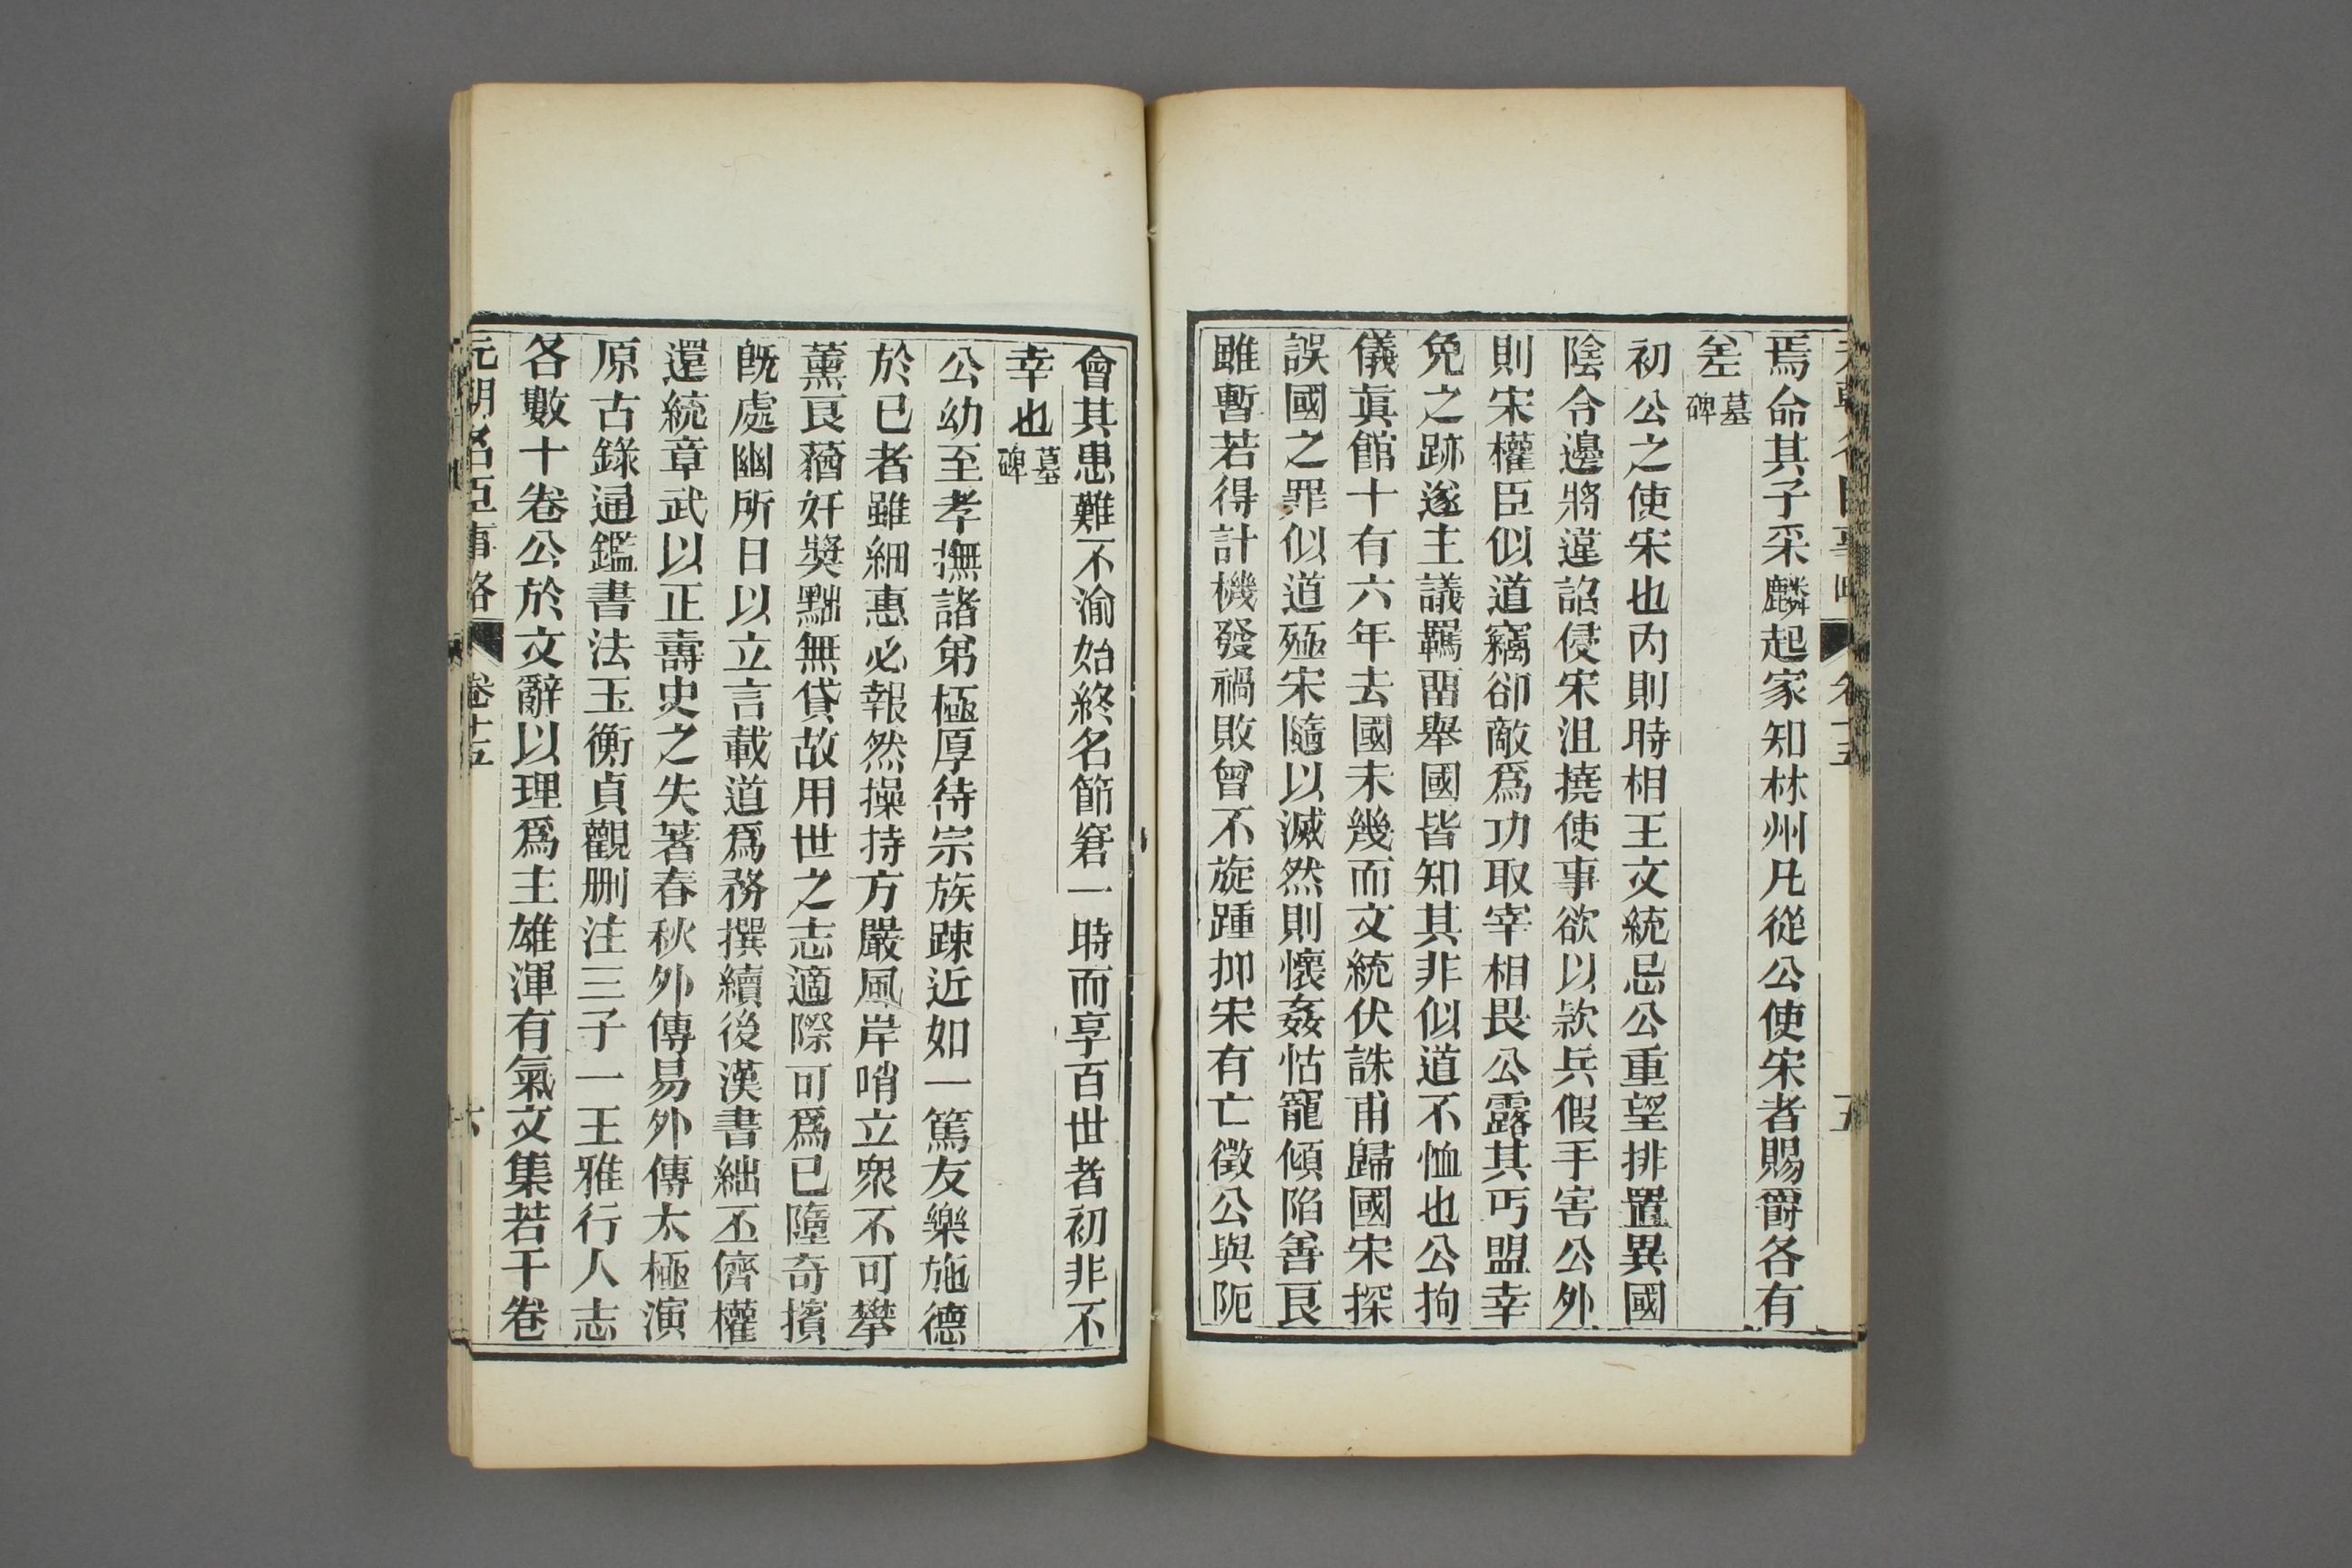 焉命其子采麟起家知林州凡從公使宋者賜爵各有
差墓碑
初公之使宋也内則時相王文統忌公重望排置異國
陰令邊將違詔侵宋沮撓使事欲以款兵假手害公外
則宋權臣似道竊卻敵爲功取宰相畏公露其丐盟幸
免之跡遂主議羈畱舉國皆知其非似道不恤也公拘
儀眞館十有六年去國未幾而文統伏誅甫歸國宋探
誤國之罪似道殛宋隨以滅然則懷姦怙寵傾陷善良
雖暫若得計機發禍敗曾不旋踵抑宋有亡徵公與阨
會其患難不渝始終名節窘一時而享百世者初非不
幸也墓碑
公幼至孝撫諸弟極厚待宗族疎近如一篤友樂施德
於已者雖細惠必報然操持方嚴風岸哨立衆不可攀
薰良蕕奸奬黜無貸故用世之志適際可爲已墮奇擯
旣處幽所日以立言載道爲務撰續後漢書絀丕儕權
還統章武以正壽史之失著春秋外傳易外傳太極演
原古錄通鑑書法玉衡貞觀删注三子一王雅行人志
各數十卷公於文辭以理爲主雄渾有氣文集若干卷
元朝名臣事略 卷十五 六